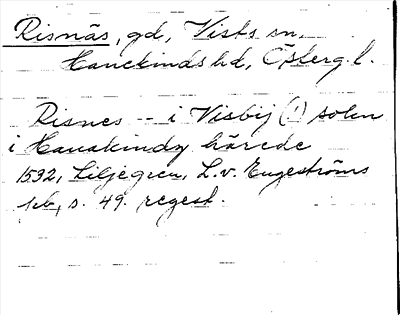 Risnäs, gd, Vists sn,
Hanekinds hd, Österg. l.
Risnes -- i Visbij (!) sokn
i Hanakindz härede
1592, Liljegren, L. v. Engeströms
s. 49. regest.